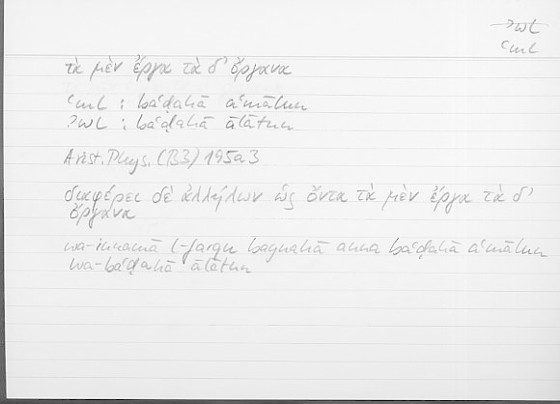 ʾwl
ʿml
τὰ μὲν ἔργα τὰ δ' ὄργανα
ʿml : baʿḍahā aʿmālun
ʾwl : baʿḍahā ālātun
Arist. Phys. (B3) 195a3
διαφέρει δὲ ἀλλήλων ὡς ὄντα τὰ μὲν ἔργα τὰ δ'
ὄργανα
wa-innamā l-farqu baynahā anna baʿḍahā aʿmālun
wa-baʿḍahā ālātun